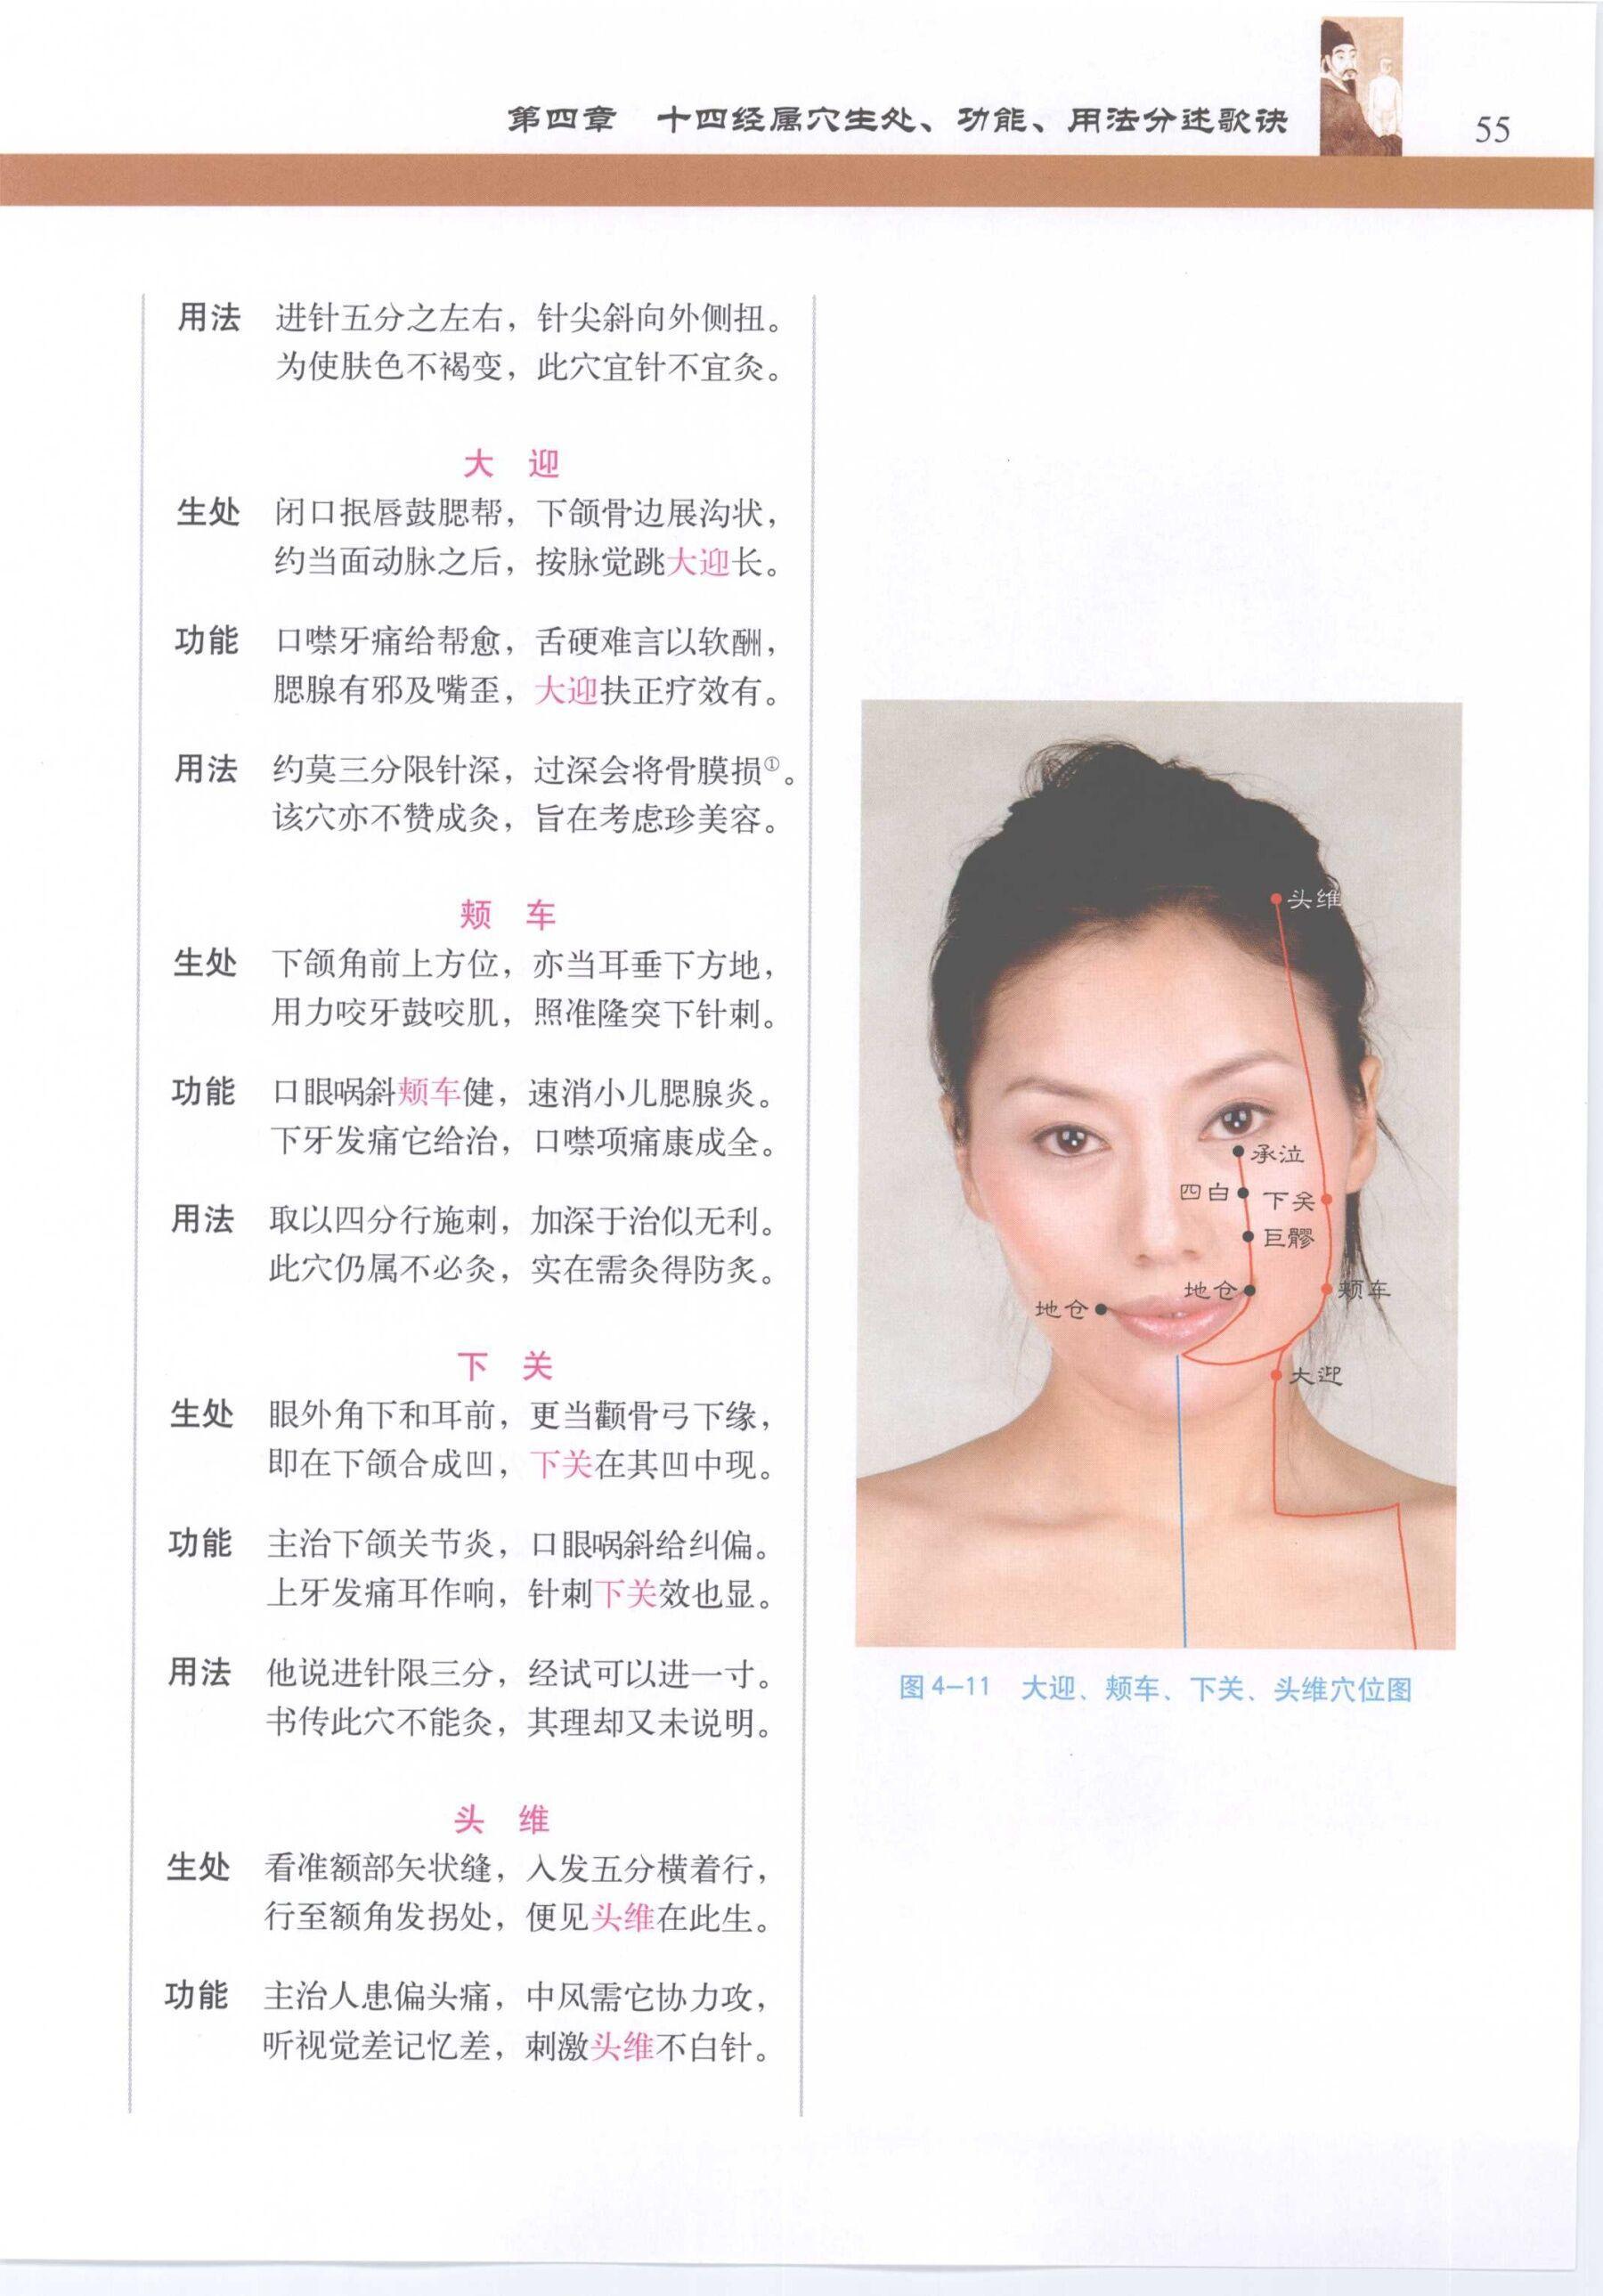 第四章 十四经属穴生处、功能、用法分述歌诀
55
用法 进针五分之左右，针尖斜向外侧扭。
为使肤色不褐变，此穴宜针不宜灸。
大 迎
生处 闭口抿唇鼓腮帮，下颌骨边展沟状，
约当面动脉之后，按脉觉跳大迎长。
功能 口噤牙痛给帮愈，舌硬难言以软酬，
腮腺有邪及嘴歪，大迎扶正疗效有。
用法 约莫三分限针深，过深会将骨膜损①。
该穴亦不赞成灸，旨在考虑珍美容。
颊 车
生处 下颌角前上方位，亦当耳垂下方地，
用力咬牙鼓咬肌，照准隆突下针刺。
功能 口眼㖞斜颊车健，速消小儿腮腺炎。
下牙发痛它给治，口噤项痛康成全。
用法 取以四分行施刺，加深于治似无利。
此穴仍属不必灸，实在需灸得防炙。
下 关
生处 眼外角下和耳前，更当颧骨弓下缘，
即在下颌合成凹，下关在其凹中现。
功能 主治下颌关节炎，口眼㖞斜给纠偏。
上牙发痛耳作响，针刺下关效也显。
用法 他说进针限三分，经试可以进一寸。
书传此穴不能灸，其理却又未说明。
头 维
生处 看准额部矢状缝，入发五分横着行，
行至额角发拐处，便见头维在此生。
功能 主治人患偏头痛，中风需它协力攻，
听视觉差记忆差，刺激头维不白针。
头维
承泣
四白
下关
巨髎
地仓
颊车
地仓
大迎
图4-11 大迎、颊车、下关、头维穴位图